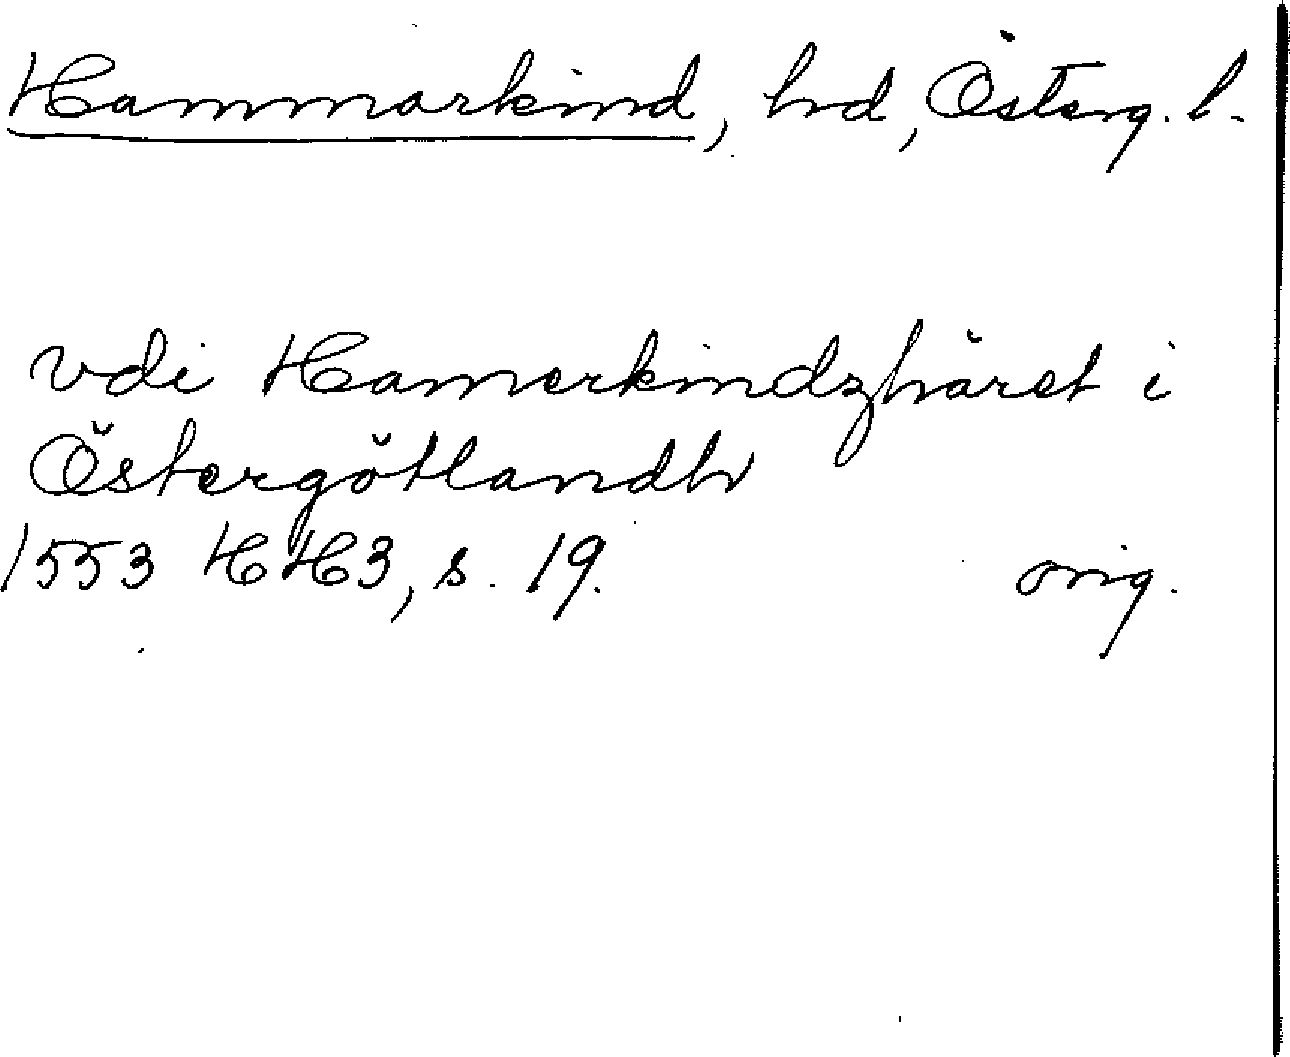 Hammarkind, hd, Österg. l.
vdi Hamerkindzhäret i
Östergötlandh
1553 HH3, s. 19. orig.